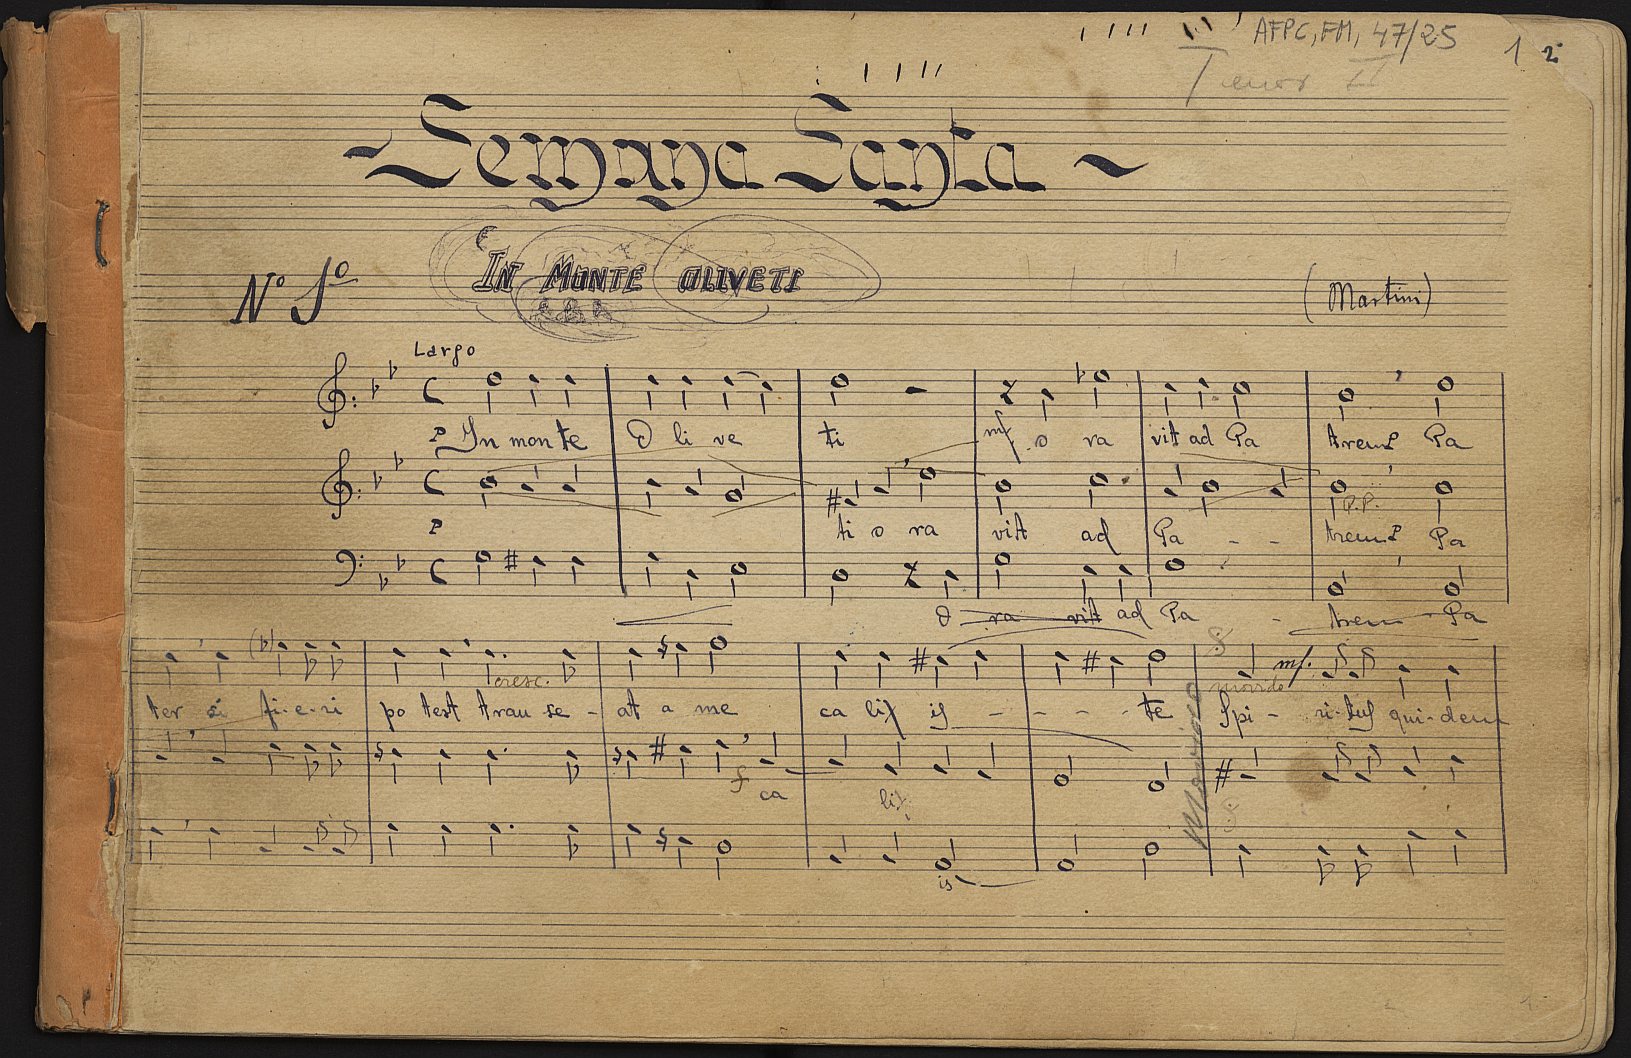 AFPC, FM, 47/25 1 2
Tenor II
Semana Santa
Nº 1º
IN MONTE OLIVETI
(Martini)
Largo
P In mon te O li ve ti mf o ra vit ad Pa trem P Pa
P ti o ra vit ad Pa - - trem P Pa
P.P.
O ra vit ad Pa - trem Pa
cresc. mf.
movido
ter si fi-e-ri po test tran se - at a me ca lix is - - - - te Spi - ri-tus qui-dem
Movido
f
ca lix
is